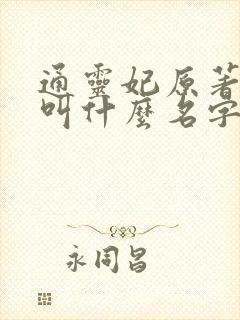 通靈妃原著
叫什麼名字
永同昌